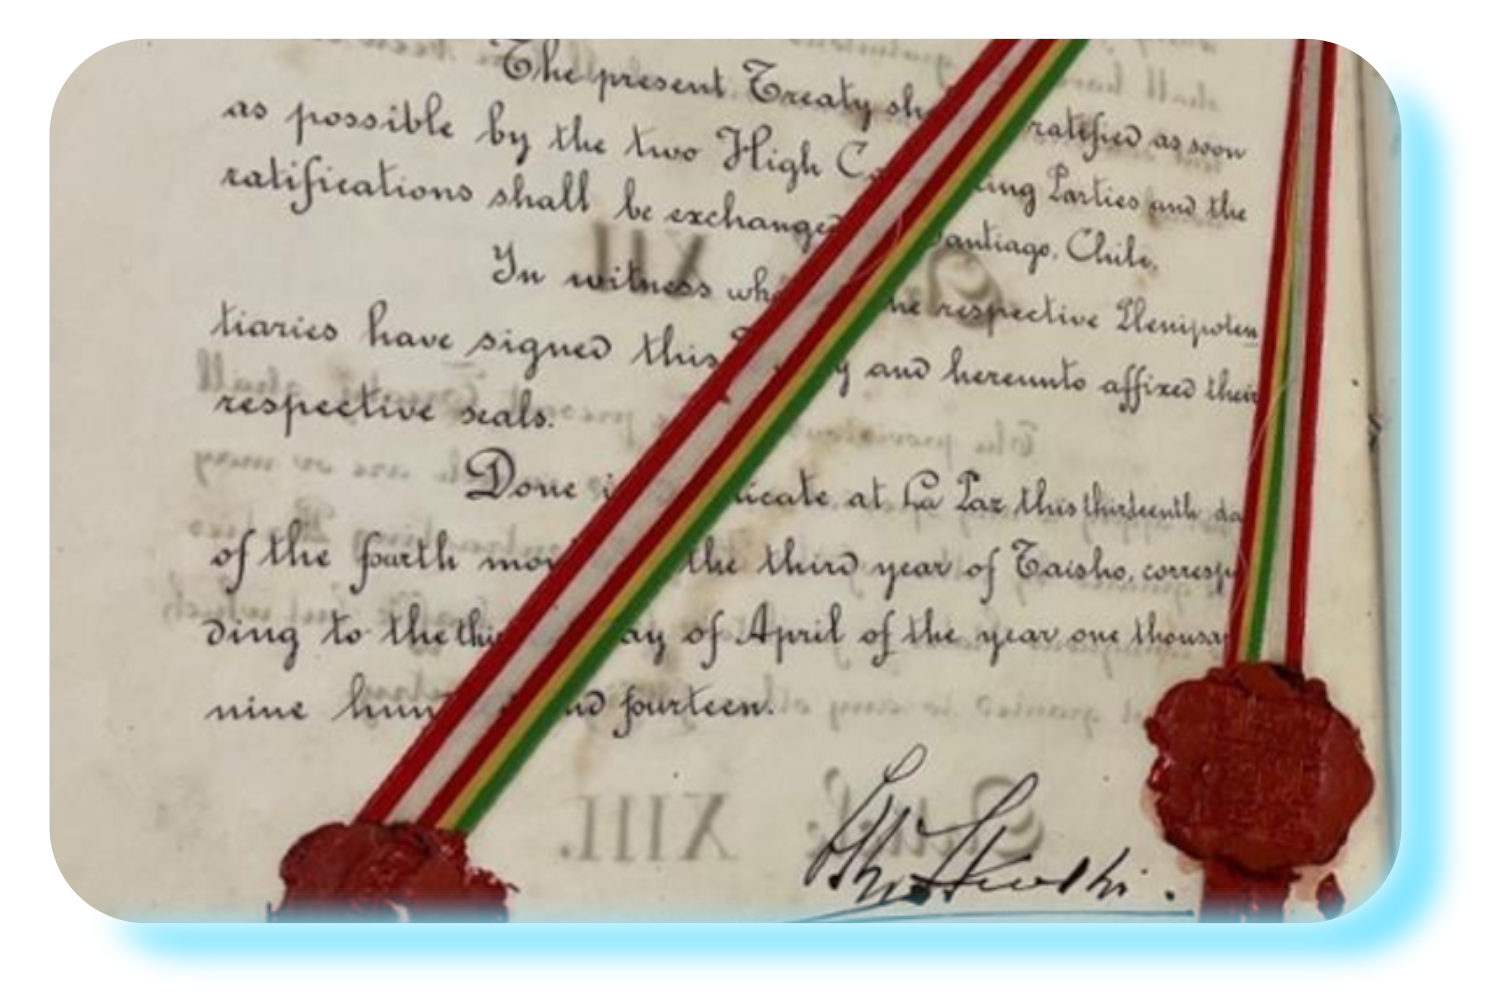 The present Treaty sh ratified as soon
as possible by the two High Co ing Parties and the
ratifications shall be exchanged Santiago, Chile.
In witness wh he respective Plenipoten
tiaries have signed this y and hereunto affixed their
respective seals.
Done i icate, at La Paz this thirteenth da
of the fourth mon the third year of Taisho, corresp
ding to the thi ay of April of the year one thousan
nine hun nd fourteen.
XII
XIII.